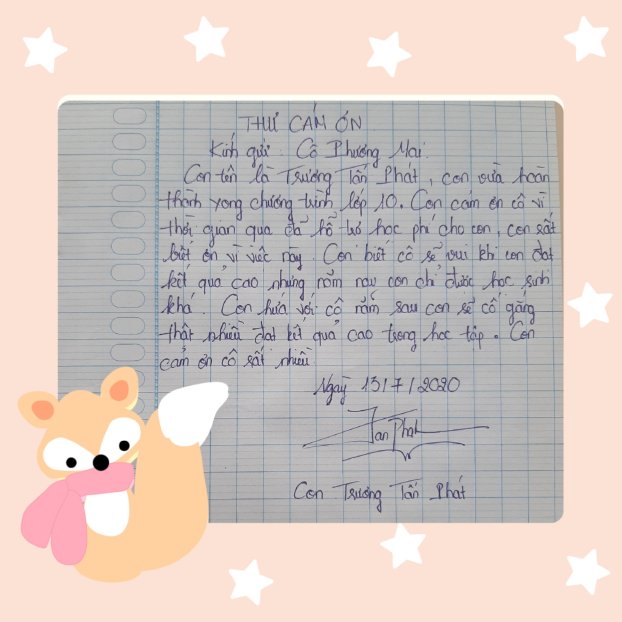 THƯ CÁM ƠN
Kính gửi : Cô Phương Mai.
Con tên là Trương Tấn Phát, con vừa hoàn
thành xong chương trình lớp 10. Con cám ơn cô vì
thời quan qua đã hỗ trợ học phí cho con, con rất
biết ơn vì việc này. Con biết cô sẽ vui khi con đạt
kết quả cao nhưng năm nay con chỉ được học sinh
khá. Con hứa với cô năm sau con sẽ cố gắng
thật nhiều đạt kết quả cao trong học tập. Con
cảm ơn cô rất nhiều
Ngày 15/7/2020
Tan Phat
Con Trương Tấn Phát